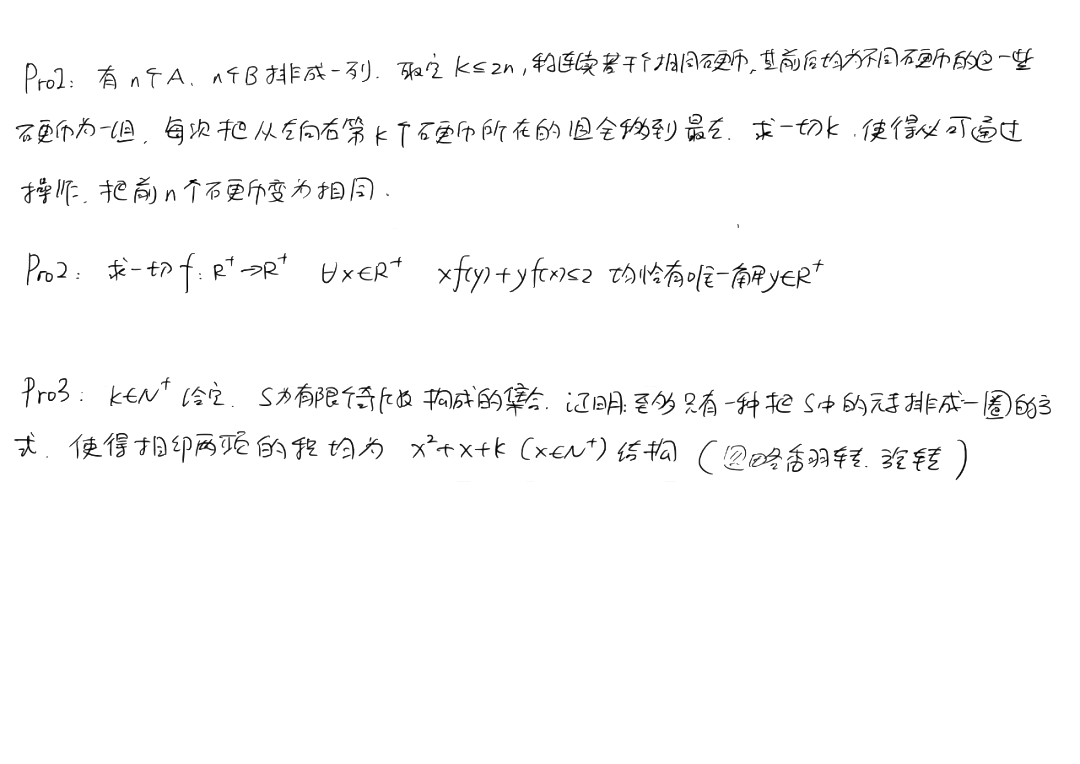 Pro1: 有 n个A、n个B 排成一列. 取定 k≤2n, 称连续若干个相同硬币, 其前后均为不同硬币的这一些
硬币为一组, 每次把从左向右第 k 个硬币所在的组全移到最左. 求一切k, 使得必可通过
操作, 把前n个硬币变为相同.
Pro2: 求一切 f: R⁺→R⁺ ∀x∈R⁺ xf(y)+yf(x)≤2 均恰有唯一解y∈R⁺
Pro3: k∈N⁺ 给定. S为有限个奇质数构成的集合. 证明: 至多只有一种把 S中的元素排成一圈的方
式. 使得相邻两项的积均为 x²+x+k (x∈N⁺) 结构 (忽略翻转. 旋转)